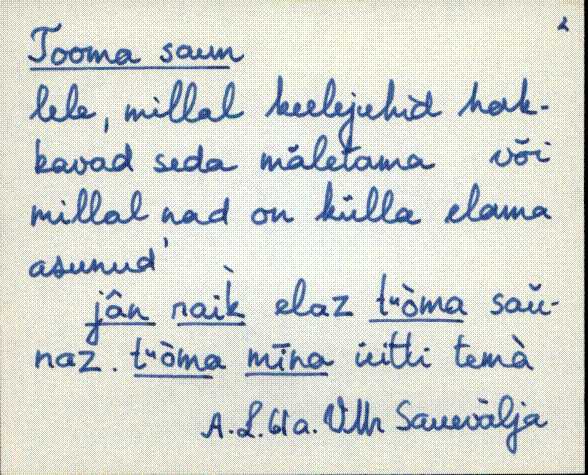 2
Tooma saun
lele, millal keelejuhid hak-
kavad seda mäletama või
millal nad on külla elama
asunud'
jân ràik elaz tᵘòma saŭ-
naz. tᵘòma mīna iutti temà
A.L. 61a. Vllr Sauevälja